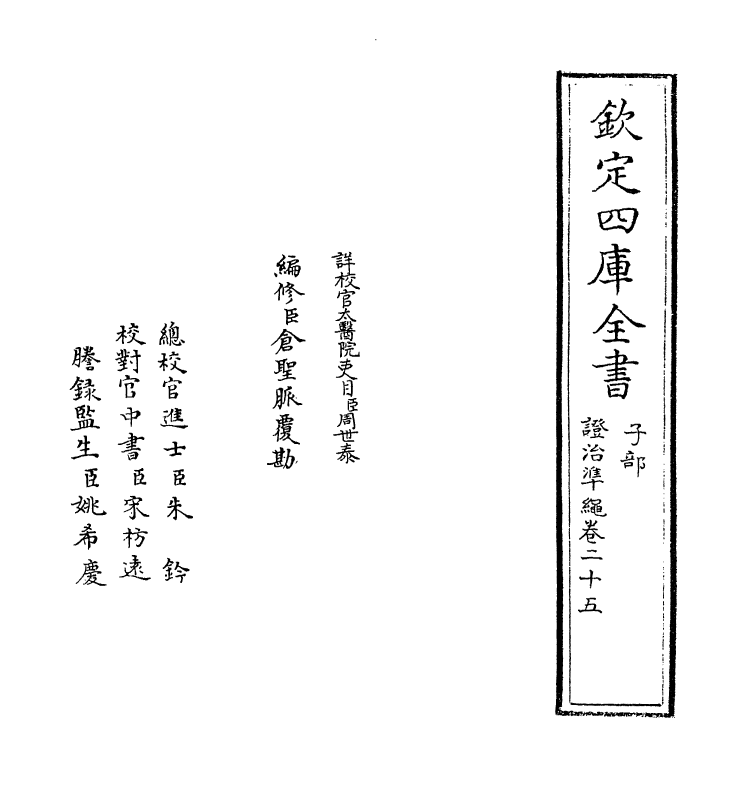 欽定四庫全書
子部
證治準繩卷二十五
詳校官太醫院吏目臣周世泰
編修臣倉聖脈覆勘
總校官進士臣朱鈐
校對官中書臣宋枋遠
謄錄監生臣姚希慶